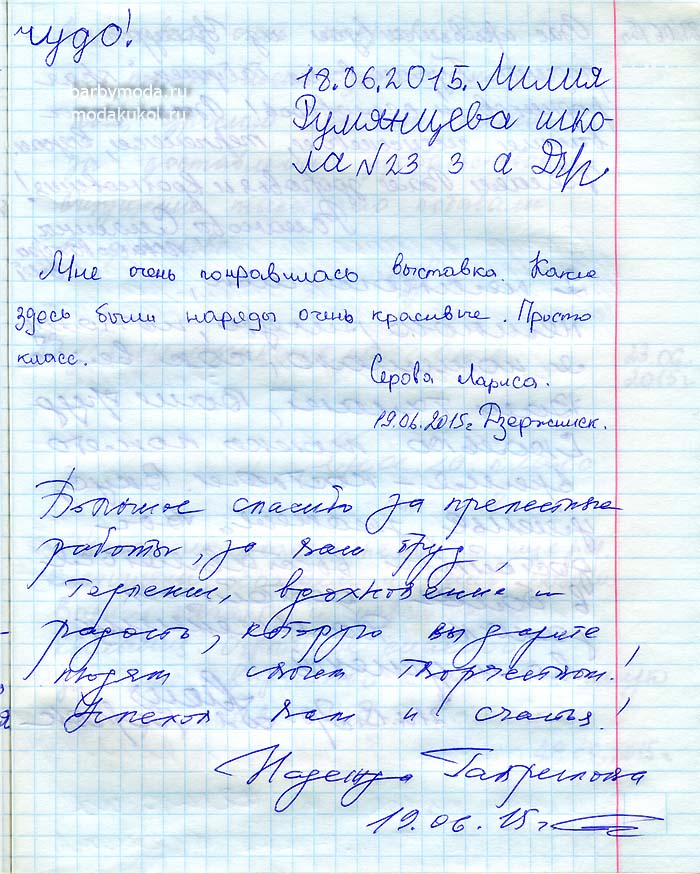 чудо!
barbymoda.ru
modakukol.ru
18.06.2015. Лилия
Румянцева шко-
ла №23 3 а Дзр
Мне очень понравилась выставка. Какие
здесь были наряды очень красивые. Просто
класс.
Серова Лариса.
19.06.2015г Дзержинск.
Большое спасибо за прелестные
работы, за ваш труд,
терпение, вдохновение и
радость, которую вы дарите
людям своим творчеством!
Успехов вам и счастья!
Надежда Гаврилова
19.06.15г